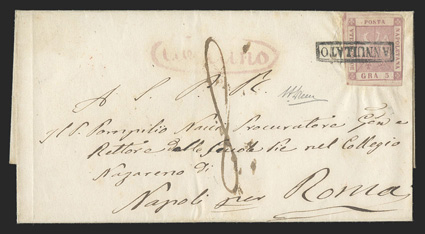 POSTA
NAPOLETANA
GRA 5
ANNULLATO
A S. P. R.
Il S. Pompilio Procuratore Gen e
Rettore delle Scuole Pie nel Collegio
Nazareno di
Napoli per Roma